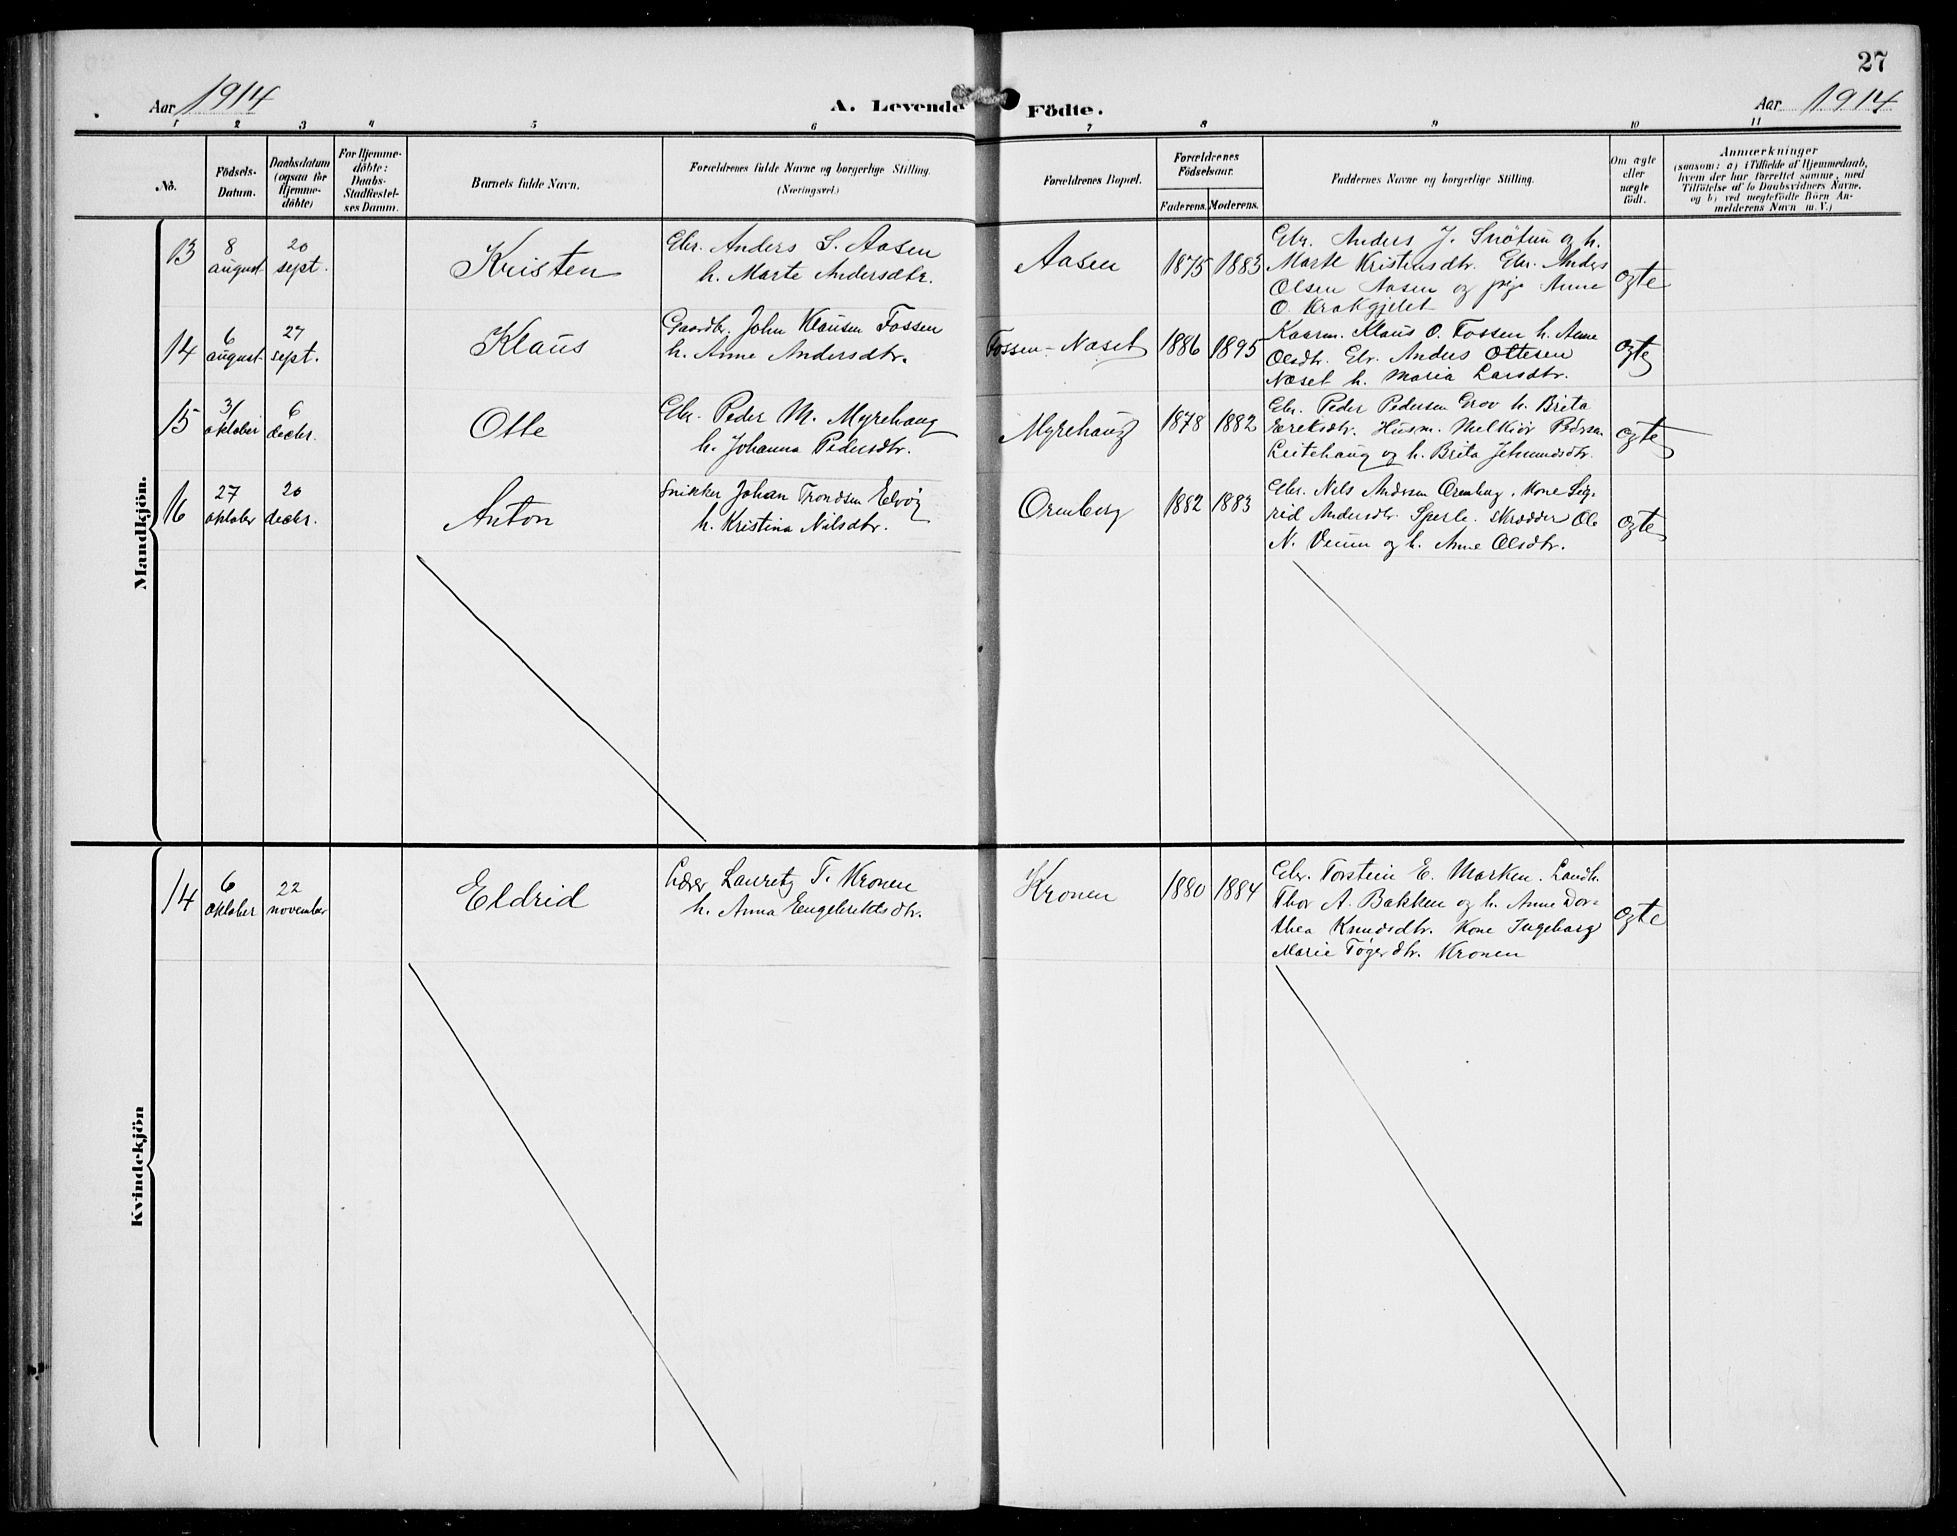 27
Aar 1914
A. Levende Födte.
Aar 1914
1 2 3 4 5 6 7 8 9 10 11
No.
Födsels-
Datum.
Daabsdatum
(ogsaa for
Hjemme-
döbte)
For Hjemme-
döbte:
Daabs-
Stadfæstel-
ses Datum.
Barnets fulde Navn.
Forældrenes fulde Navne og borgerlige Stilling.
(Næringsvei.)
Forældrenes Bopæl.
Forældrenes
Födselsaar.
Faderens. Moderens.
Faddernes Navne og borgerlige Stilling.
Om ægte
eller
uægte
født.
Anmærkninger
(saasom: a) i Tilfælde af Hjemmedaab,
hvem der har forrettet samme, med
Tilföielse af to Daabsvidners Navne.
og b) ved uegtefödte Börn An-
melderens Navn m. V.)
Mandkjön.
13
8
august
20
sept.
Kristen
Gbr. Anders S. Aasen
h. Marte Andersdtr.
Aasen
1875 1883
Gbr. Anders J. Snötun og h.
Marte Kristensdtr. Gbr. Anders
Olsen Aasen og pige Anne
O. Krakgjelet
ægte
14
6
august
27
sept.
Klaus
Gaardbr. John Klausen Fossen
h. Anne Andersdtr.
Fossen-Næset
1886 1895
Kaarm. Klaus O. Fossen h. Anne
Olsdtr. Gbr. Anders Ottesen
Næset h. Maria Larsdtr.
ægte
15
31
oktober
6
decbr.
Otte
Gbr. Peder M. Myrehaug
h. Johanna Pedersdtr.
Myrehaug
1878 1882
Gbr. Peder Pedersen Grov h. Brita
Eriksdtr. Husm. Melkiör
Leitehaug og h. Brita Jetmundsdtr.
ægte
16
27
oktober
20
decbr.
Anton
Snikker Johan Trondsen Elvög
h. Kristina Nilsdtr.
Orenberg
1882 1883
Gbr. Nils Andersen Orenberg. Kone Sig-
rid Andersdtr. Sperle. Skrædder Ole
N. Veum og h. Anne Olsdtr.
ægte
Kvindekjön
14
6
oktober
22
november
Eldrid
Lærer Lauretz T. Kronen
h. Anna Engebretsdtr.
Kronen
1880 1884
Gbr. Torstein E. Marken. Landh.
Thor A. Bakken og h. Anne Dor-
thea Knudsdtr. Kone Ingeborg
Marie Tögersdtr. Kronen
ægte